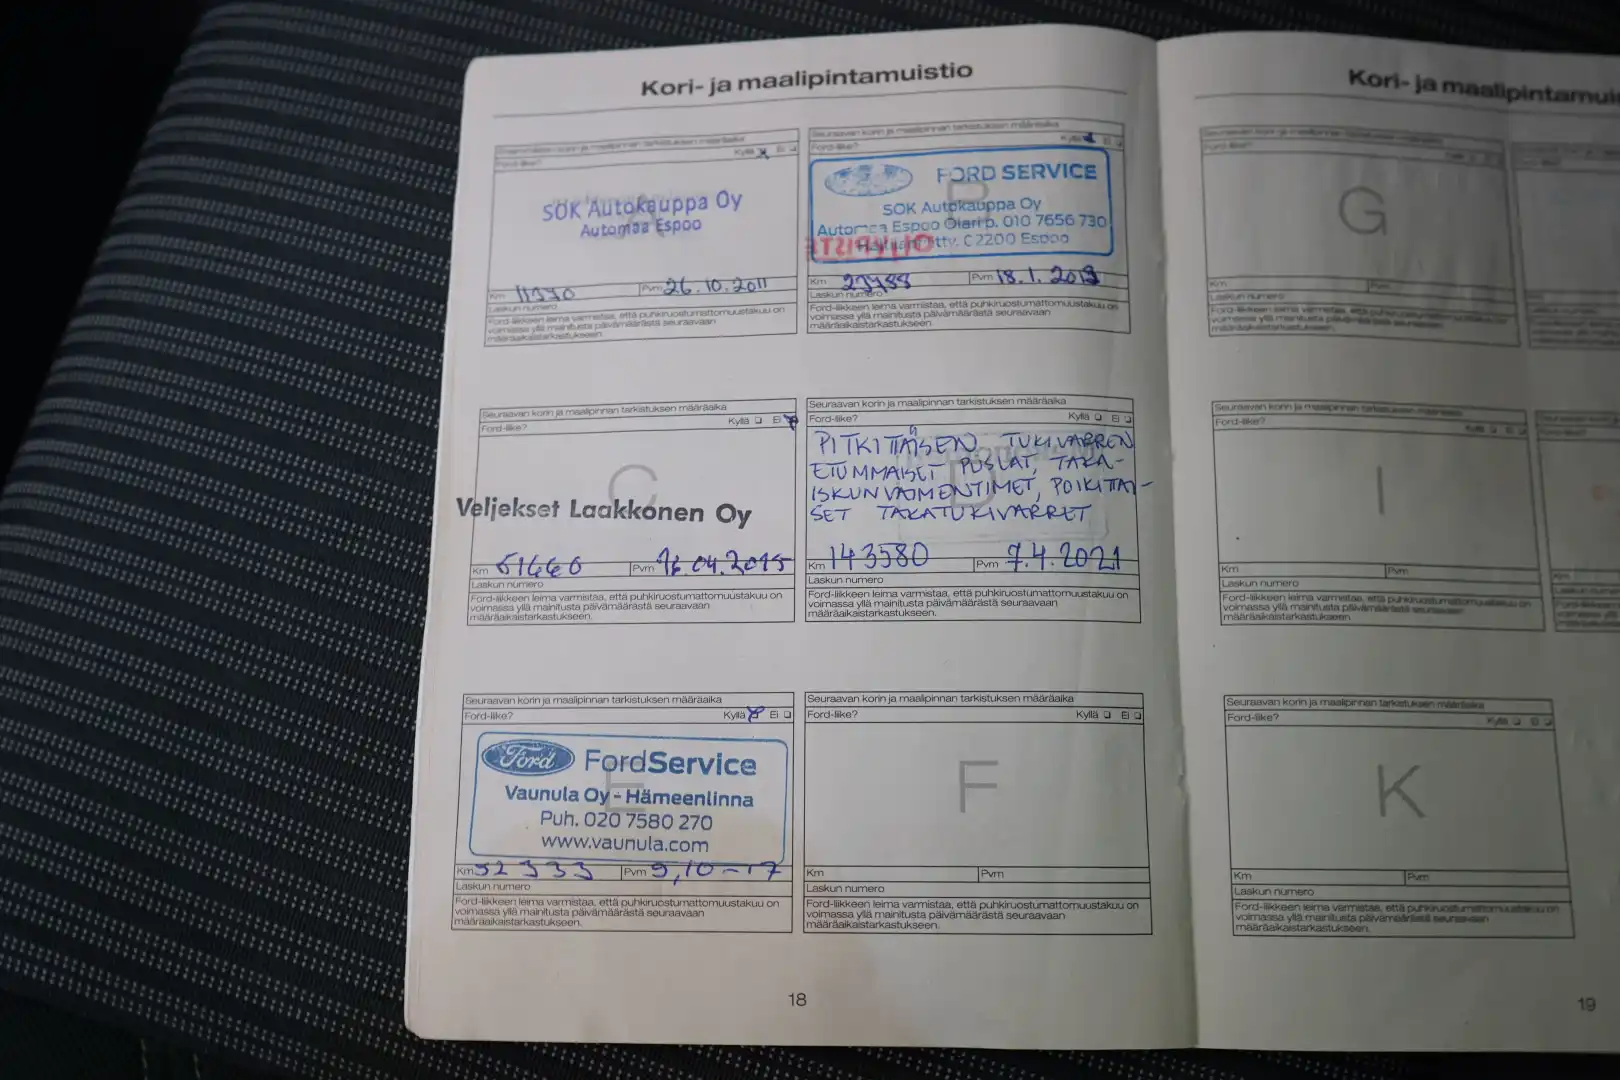 Kori- ja maalipintamuistio
Ford-liike?
Kyllä Ei
A
SOK Autokauppa Oy
Automaa Espoo
Km 11370 Pvm 26.10.2011
Laskun numero
Ford-liikkeen leima varmistaa, että puhkiruostumattomuustakuu on
voimassa yllä mainitusta päivämäärästä seuraavaan
määräaikaistarkastukseen.
Seuraavan korin ja maalipinnan tarkistuksen määräaika
Ford-like?
Kyllä Ei
FORD SERVICE
SOK Autokauppa Oy
Automaa Espoo Olari p. 010 7656 730
02200 Espoo
Km 23488 Pvm 18.1.2013
Laskun numero
Ford-liikkeen leima varmistaa, että puhkiruostumattomuustakuu on
voimassa yllä mainitusta päivämäärästä seuraavaan
määräaikaistarkastukseen.
Seuraavan korin ja maalipinnan tarkistuksen määräaika
Ford-like?
Kyllä Ei
C
Veljekset Laakkonen Oy
Km 51660 Pvm 16.04.2015
Laskun numero
Ford-liikkeen leima varmistaa, että puhkiruostumattomuustakuu on
voimassa yllä mainitusta päivämäärästä seuraavaan
määräaikaistarkastukseen.
Seuraavan korin ja maalipinnan tarkistuksen määräaika
Ford-like?
Kyllä Ei
D
PITKITTÄISEN TUKIVARREN
ETUMMAISET PUSLAT, TAKA-
ISKUNVAIMENTIMET, POIKITTAI-
SET TAKATUKIVARRET
Km 143580 Pvm 7.4.2021
Laskun numero
Ford-liikkeen leima varmistaa, että puhkiruostumattomuustakuu on
voimassa yllä mainitusta päivämäärästä seuraavaan
määräaikaistarkastukseen.
Seuraavan korin ja maalipinnan tarkistuksen määräaika
Ford-like?
Kyllä Ei
E
Ford FordService
Vaunula Oy - Hämeenlinna
Puh. 020 7580 270
www.vaunula.com
Km 92 333 Pvm 9,10-17
Laskun numero
Ford-liikkeen leima varmistaa, että puhkiruostumattomuustakuu on
voimassa yllä mainitusta päivämäärästä seuraavaan
määräaikaistarkastukseen.
Seuraavan korin ja maalipinnan tarkistuksen määräaika
Ford-like?
Kyllä Ei
F
Km Pvm
Laskun numero
Ford-liikkeen leima varmistaa, että puhkiruostumattomuustakuu on
voimassa yllä mainitusta päivämäärästä seuraavaan
määräaikaistarkastukseen.
18
Kori- ja maalipintamuis
Ford-like?
G
Km Pvm
Laskun numero
Ford-liikkeen leima varmistaa, että puhkiruostumattomuustakuu on
voimassa yllä mainitusta päivämäärästä seuraavaan
määräaikaistarkastukseen.
Seuraavan korin ja maalipinnan tarkistuksen määräaika
Ford-like?
I
Km Pvm
Laskun numero
Ford-liikkeen leima varmistaa, että puhkiruostumattomuustakuu on
voimassa yllä mainitusta päivämäärästä seuraavaan
määräaikaistarkastukseen.
Seuraavan korin ja maalipinnan tarkistuksen määräaika
Ford-like?
Kyllä Ei
K
Km Pvm
Laskun numero
Ford-liikkeen leima varmistaa, että puhkiruostumattomuustakuu on
voimassa yllä mainitusta päivämäärästä seuraavaan
määräaikaistarkastukseen.
19